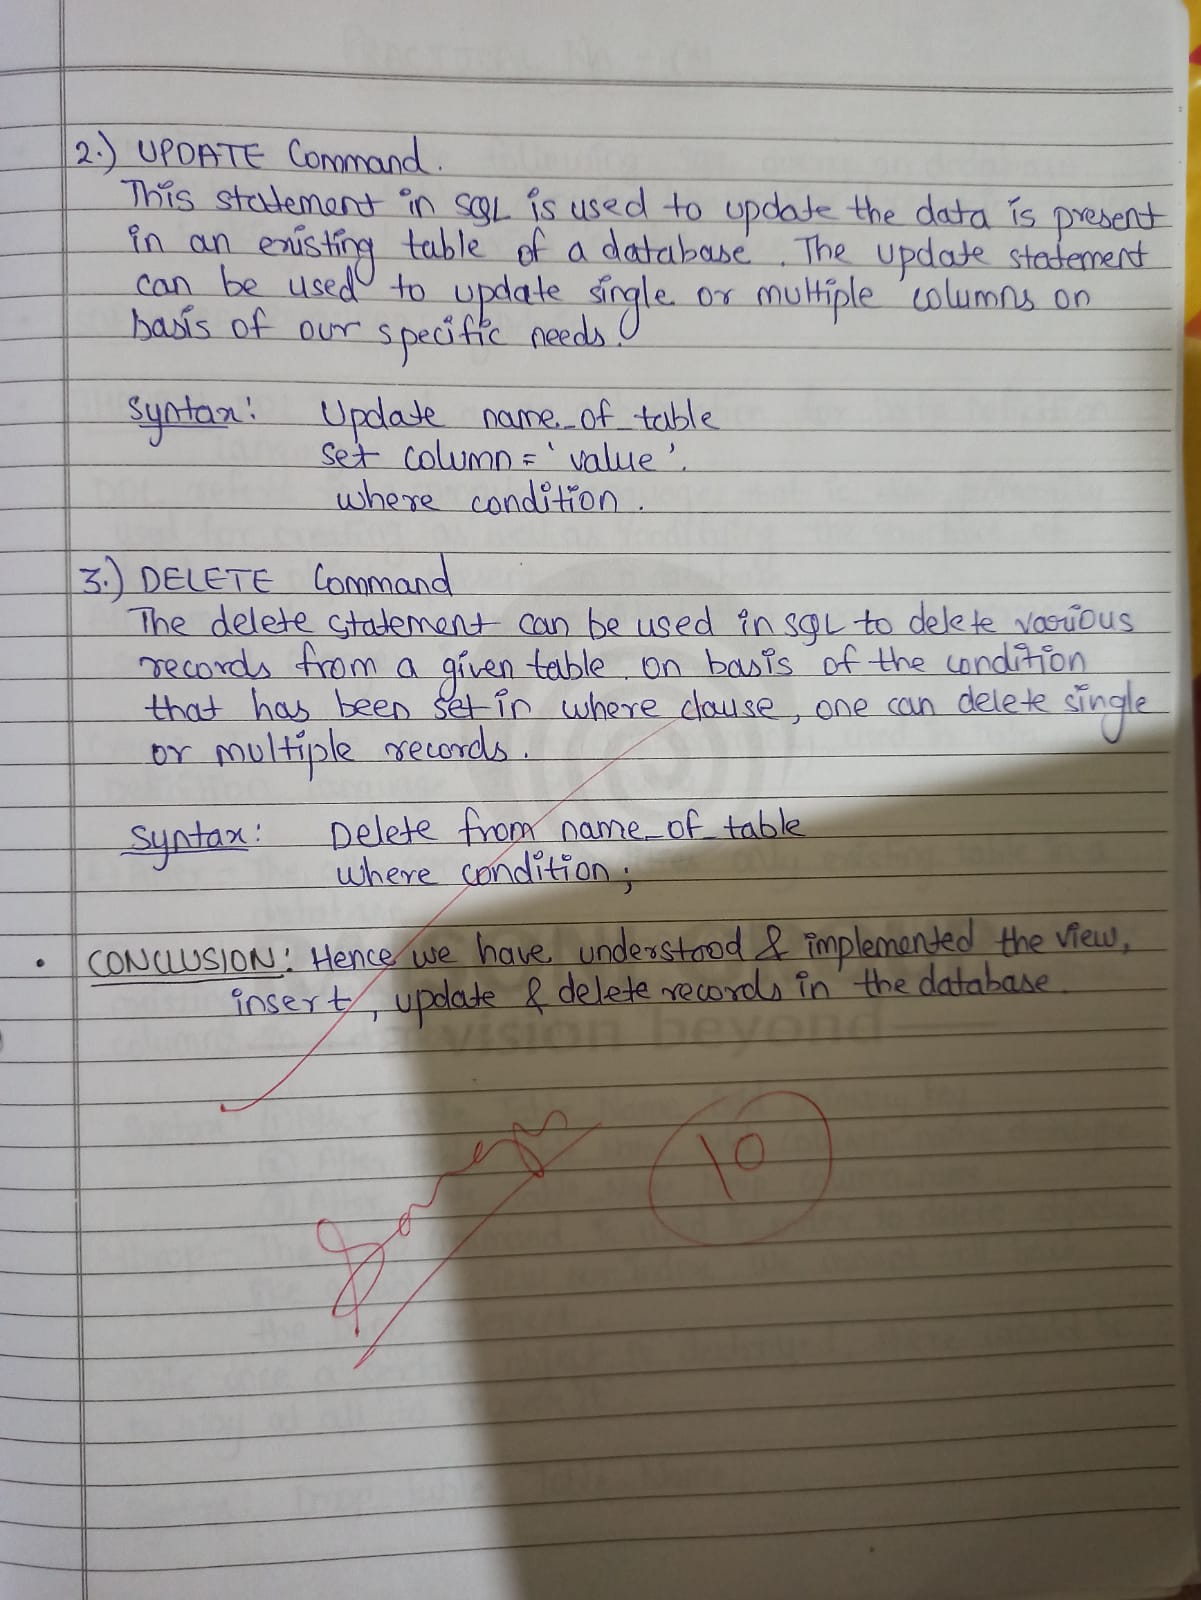 2.) UPDATE Command.
This statement in SQL is used to update the data is present
in an existing table of a database. The update statement
can be used to update single or multiple columns on
basis of our specific needs.
Syntax: Update name_of_table
set column = 'value'.
where condition.
3.) DELETE Command
The delete statement can be used in SQL to delete various
records from a given table. on basis of the condition
that has been set in where clause, one can delete single
or multiple records.
Syntax: Delete from name_of_table
where condition;
• CONCLUSION: Hence we have understood & implemented the view,
insert, update & delete records in the database.
vision beyond
10